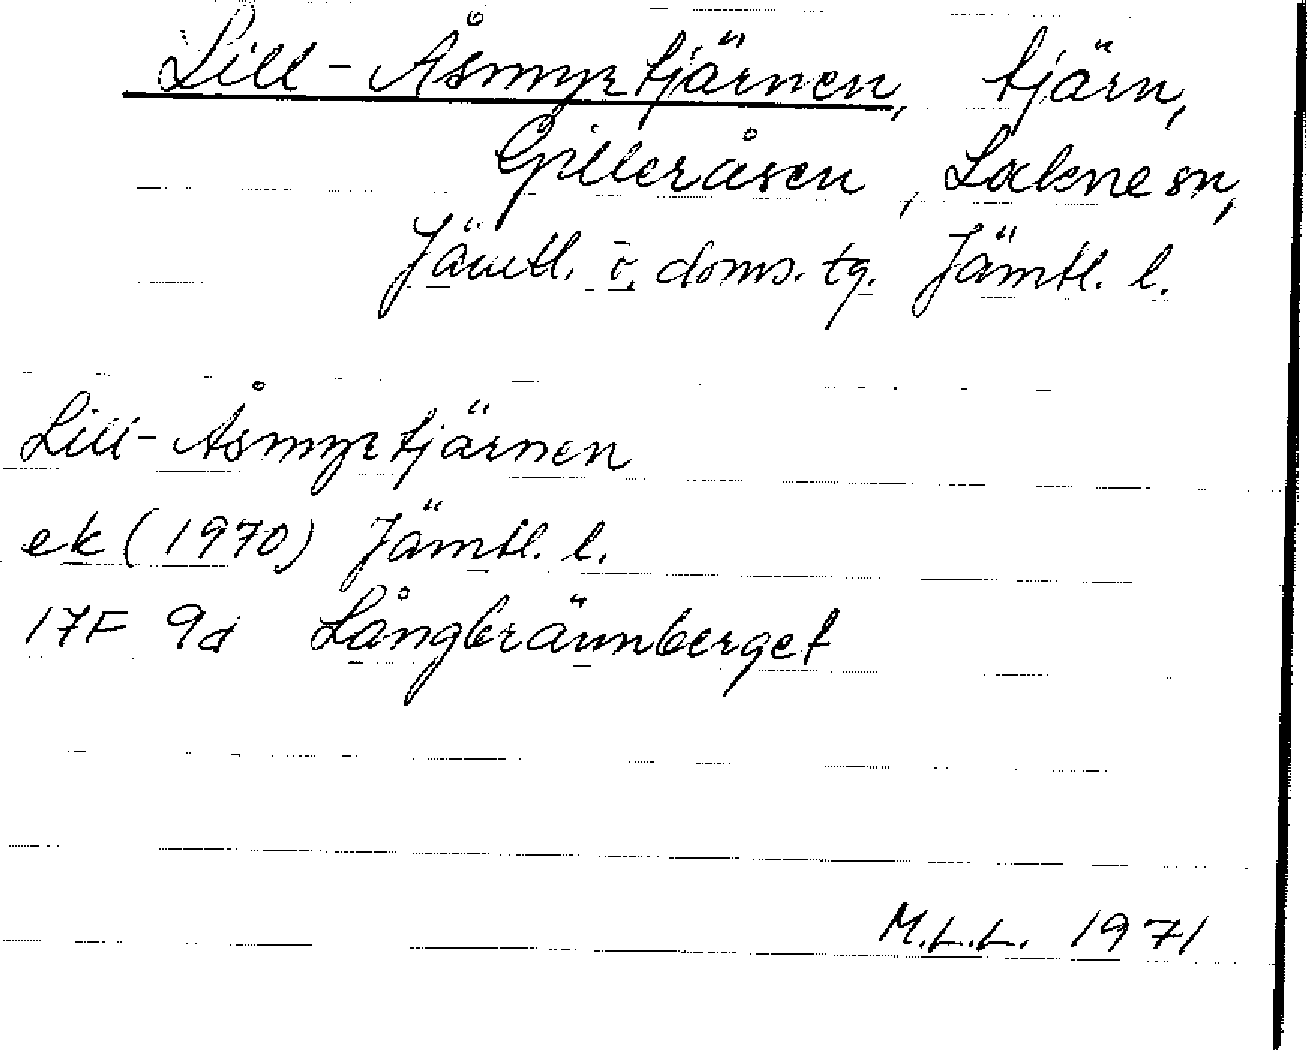 Lill-Åsmyrtjärnen, tjärn,
Gilleråsen, Lockne sn,
Jämtl. ö. doms. tg. Jämtl. l.
Lill-Åsmyrtjärnen
ek (1970) Jämtl. l.
17F 9d Långbrännberget
M.L.L. 1971